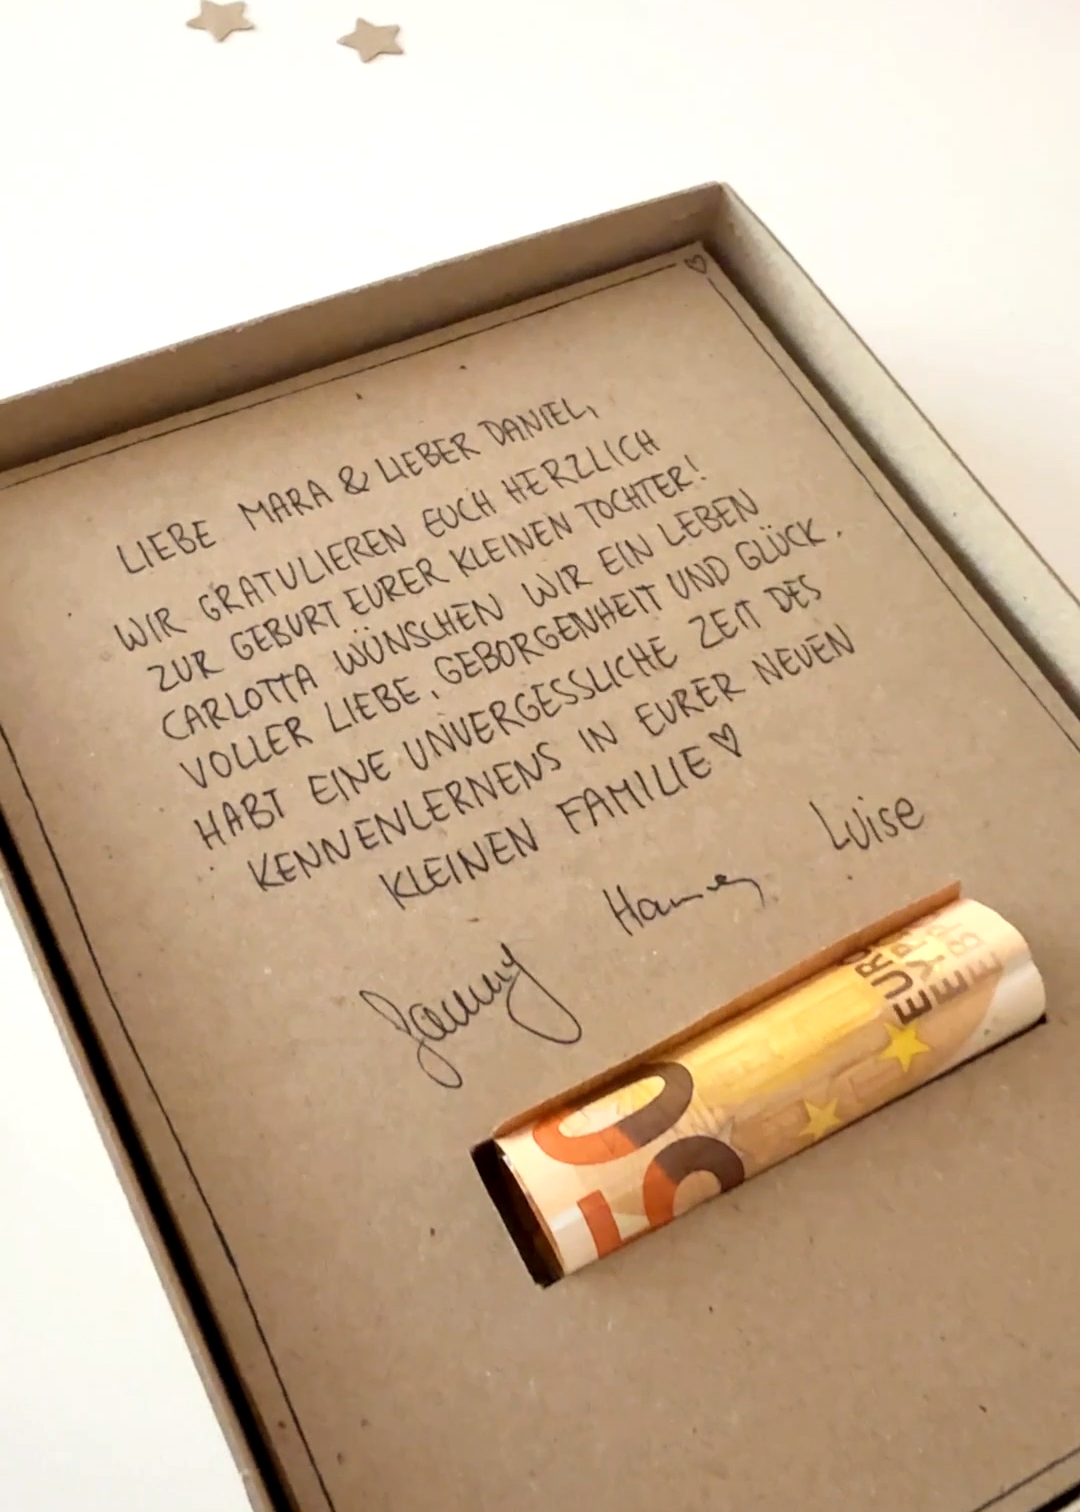 LIEBE MARA & LIEBER DANIEL,
WIR GRATULIEREN EUCH HERZLICH
ZUR GEBURT EURER KLEINEN TOCHTER!
CARLOTTA WÜNSCHEN WIR EIN LEBEN
VOLLER LIEBE, GEBORGENHEIT UND GLÜCK.
HABT EINE UNVERGESSLICHE ZEIT DES
KENNENLERNENS IN EURER NEUEN
KLEINEN FAMILIE ♡
Luise
50
EURO